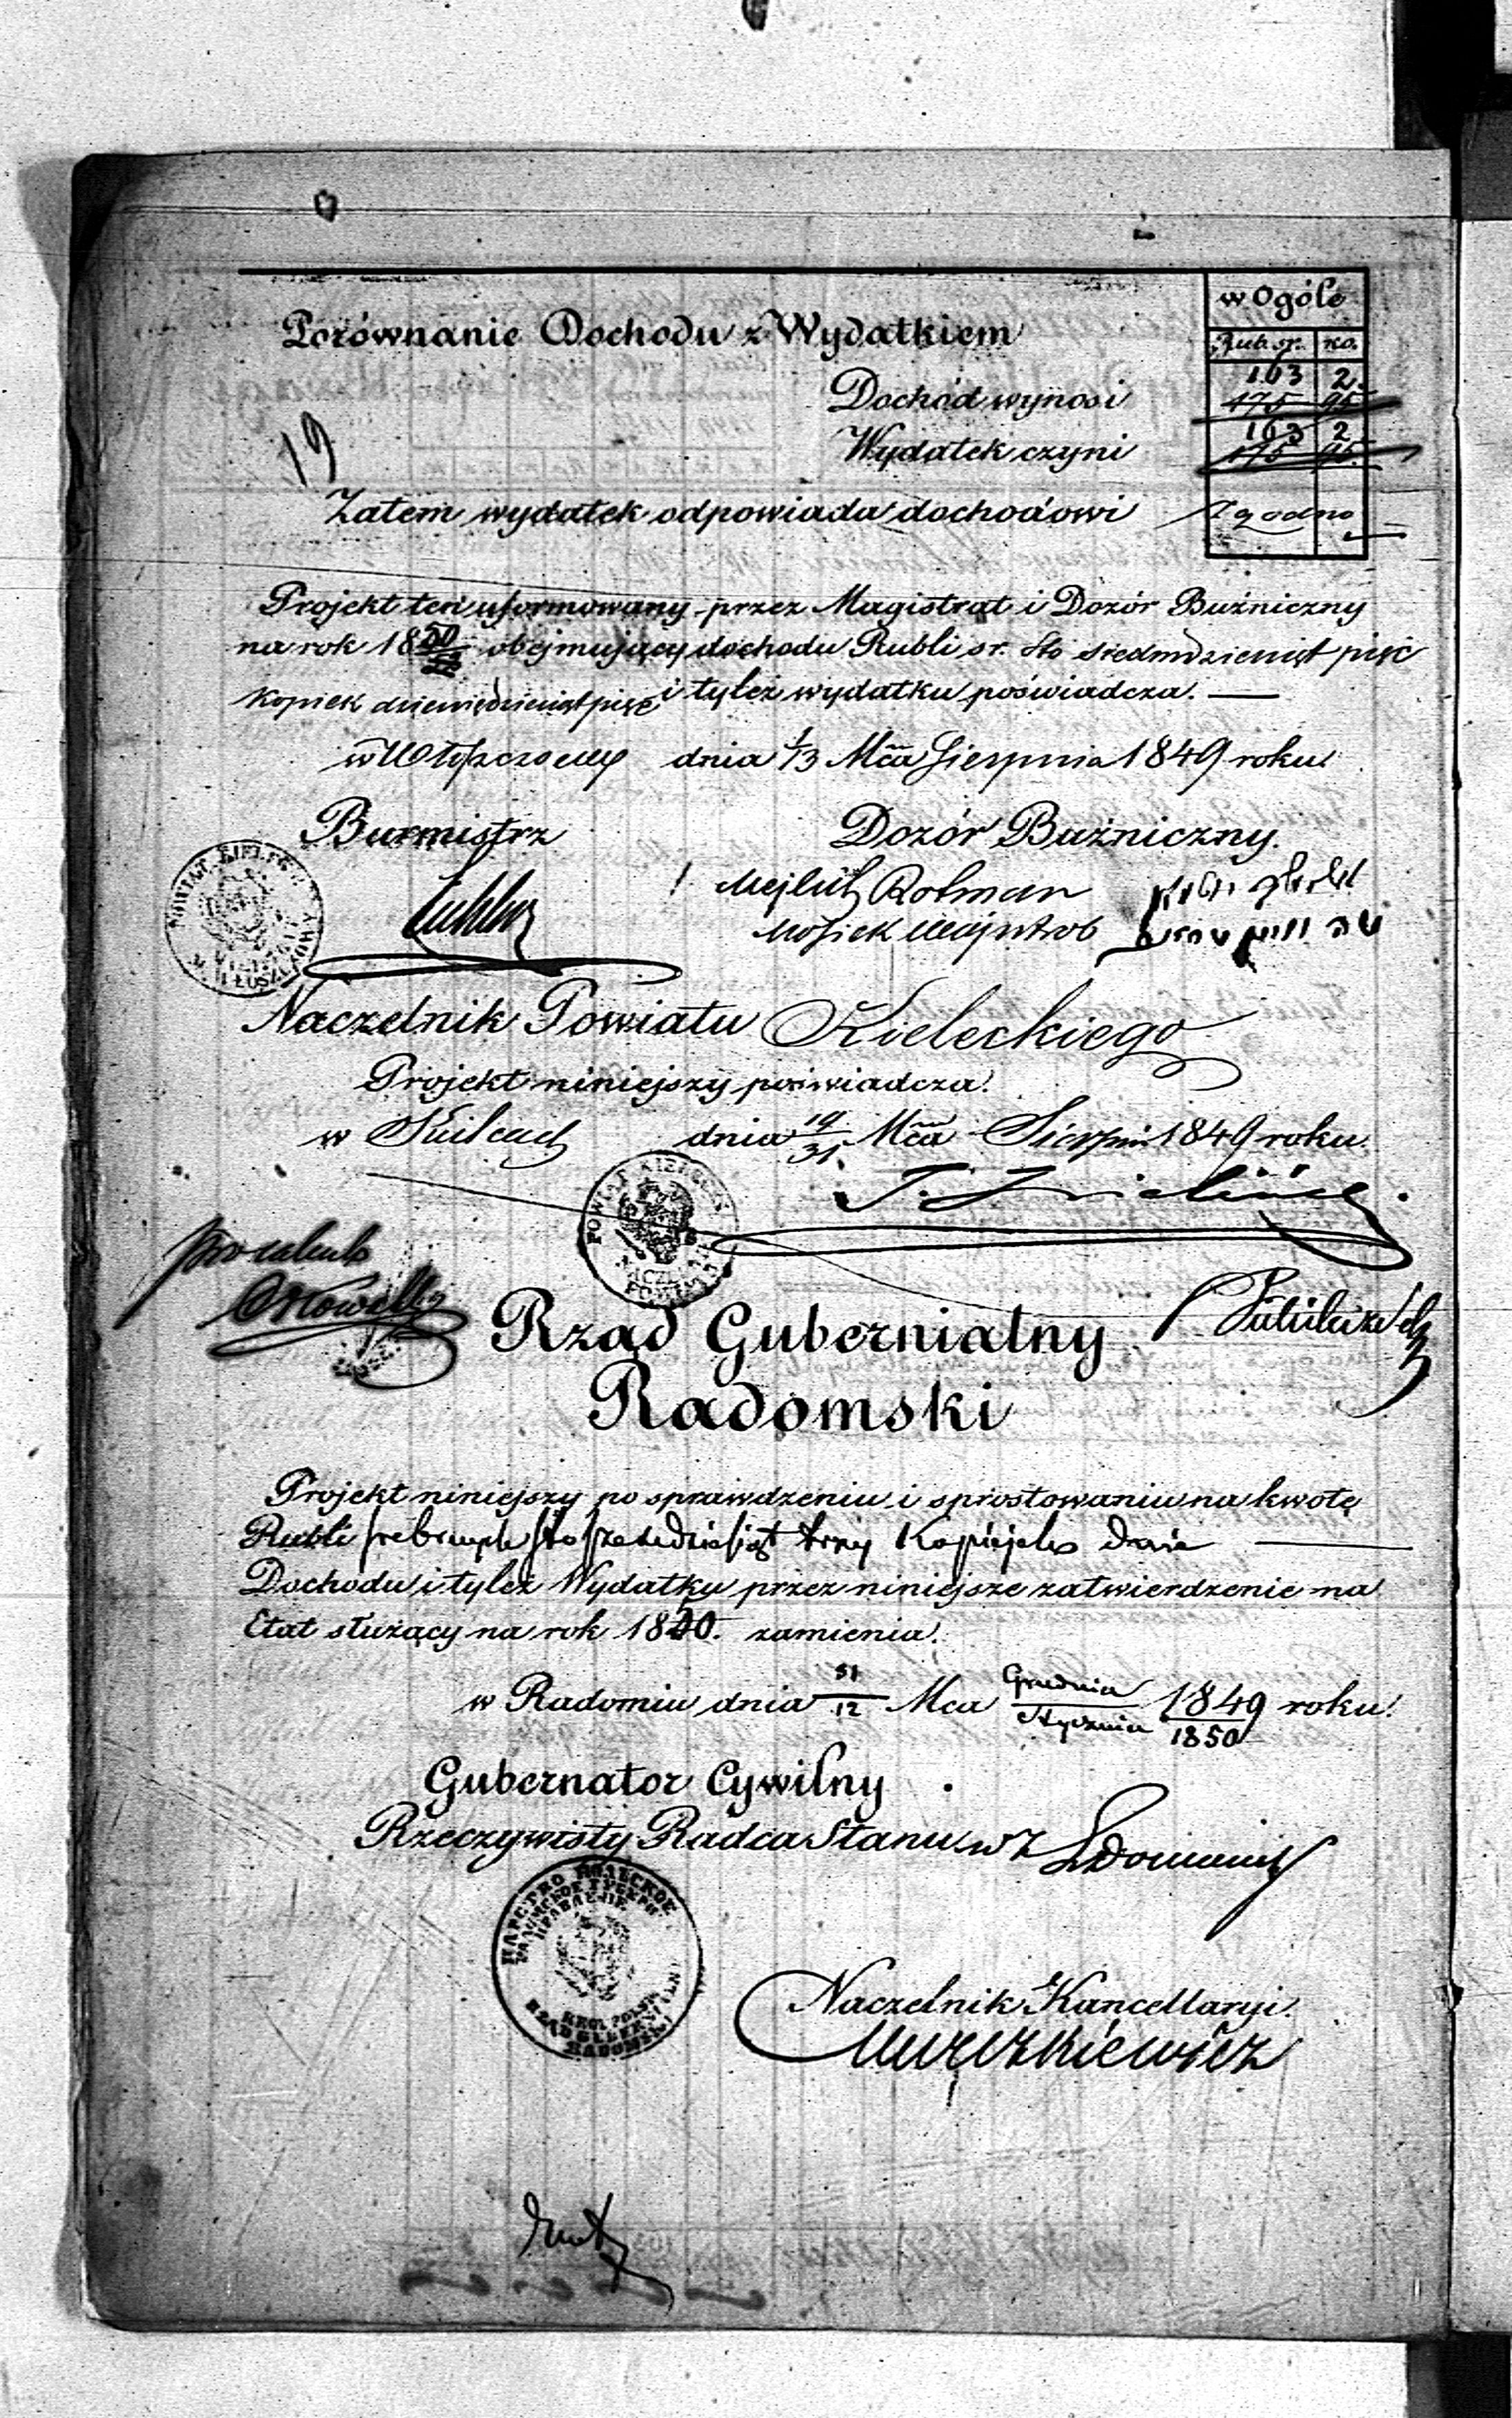 w Ogóle
Porównanie Dochodu z Wydatkiem
Rub. sr. ko.
Dochód wynosi 163 2.
175 95
19
Wydatek czyni 163 2
175 95
Zatem wydatek odpowiada dochodowi Zgodno
Projekt ten uformowany przez Magistrat i Dozór Buźniczny
na rok 1850 obejmujący dochodu Rubli sr. Sto siedmdziesiąt pięć
Kopiek dziewięćdziesiąt pięć i tyleż wydatku poświadcza.
w dnia 1/13 Mca Sierpnia 1849 roku.
Burmistrz Dozór Buźniczny.
Rotman
Mosiek Majntrob
Naczelnik Powiatu Kieleckiego
Projekt niniejszy poświadcza.
w Kielcach dnia 19/31 Mca Sierpnia 1849 roku.
POWIAT KIELECKI
Rząd Gubernialny
Radomski
Projekt niniejszy po sprawdzeniu i sprostowaniu na kwotę
Rubli srebrnych Sto sześćdziesiąt trzy Kopiejek dwie
Dochodu i tyleż Wydatku przez niniejsze zatwierdzenie na
Etat służący na rok 1850. zamienia.
w Radomiu dnia 31/12 Mca Grudnia/Stycznia 1849/1850 roku.
Gubernator Cywilny
Rzeczywisty Radca Stanu w Z
Naczelnik Kancellaryi.